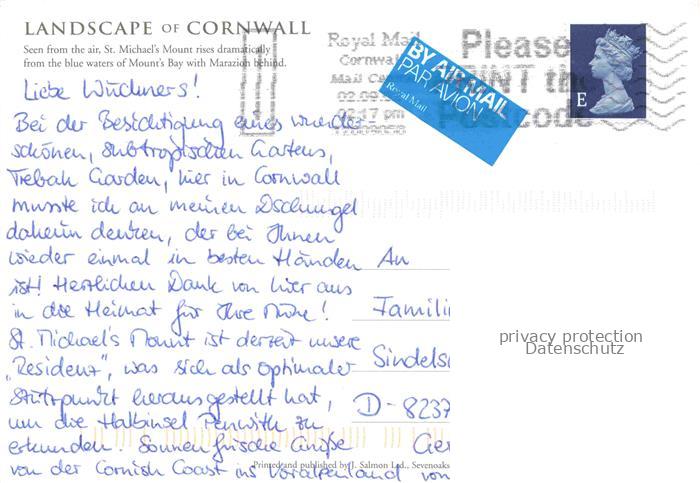 LANDSCAPE OF CORNWALL
Seen from the air, St. Michael's Mount rises dramatically
from the blue waters of Mount's Bay with Marazion behind.
Royal Mail
Cornwall
Mail Ce
02.09
17 pm
Please
the
Postcode
BY AIR MAIL
PAR AVION
Royal Mail
E
Liebe Wüchners!
Bei der Besichtigung eines wunder-
schönen, subtropischen Gartens,
Trebah Garden, hier in Cornwall
musste ich an meinen Dschungel
daheim denken, der bei Ihnen
wieder einmal in besten Händen
ist! Herzlichen Dank von hier aus
in die Heimat für Ihre Mühe!
St. Michael's Mount ist derzeit unsere
„Residenz", was sich als optimaler
Stützpunkt herausgestellt hat,
um die Halbinsel Penwith zu
erkunden. Sonnenfrische Grüße
von der Cornish Coast ins Voralpenland von
An
Famili
Sindels
D-8237
Ger
privacy protection
Datenschutz
Printed and published by J. Salmon Ltd., Sevenoaks